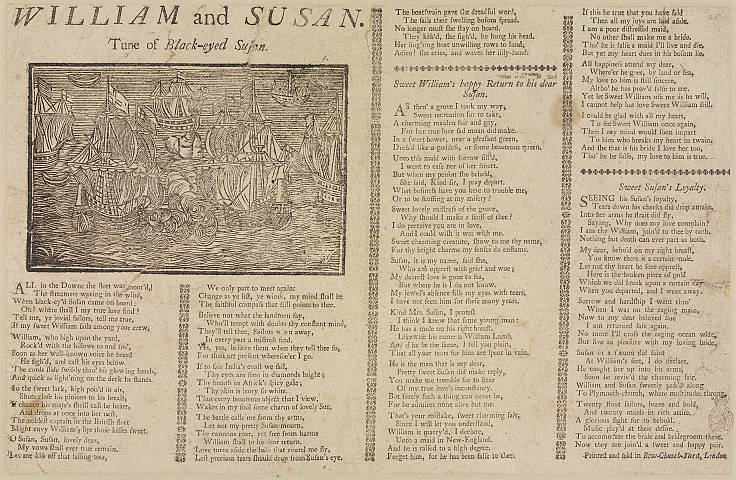 WILLIAM and SUSAN.
Tune of Black-eyed Susan.
1.
ALL in the Downs the fleet was moor'd,
The streamers waving in the wind,
When black-ey'd Susan came on board;
Oh! where shall I my true love find?
Tell me, ye jovial sailors, tell me true,
If my sweet William sails among your crew,
William, who high upon the yard,
Rock'd with the billows to and fro',
Soon as her well-known voice he heard
He sigh'd, and cast his eyes below.
The cords slide swiftly thro' his glowing hands,
And quick as light'ning on the deck he stands.
So the sweet lark, high pois'd in air,
Shuts close his pinions to his breast,
If chance his mate's shrill call he hears,
And drops at once into her nest.
The noblest captain in the British fleet
Might envy William's lips those kisses sweet.
O Susan, Susan, lovely dear,
My vows shall ever true remain,
Let me kiss off that falling tear,
We only part to meet again:
Change as ye list, ye winds, my mind shall be
The faithful compass that still points to thee.
Believe not what the landmen say,
Who'll tempt with doubts thy constant mind,
They'll tell thee, Sailors when away,
In every port a mistress find.
Yes, yes, believe them when they tell thee so,
For thou art present wheresoe'er I go.
If to fair India's coast we sail,
Thy eyes are seen in diamonds bright;
Thy breath in Africk's spicy gale;
Thy skin is ivory so white.
Thus every beauteous object that I view,
Wakes in my soul some charm of lovely Sue.
The battle calls me from thy arms,
Let not my pretty Susan mourn.
The cannons roar, yet free from harms
William shall to his dear return.
Love turns aside the balls that round me fly,
Lest precious tears should drop from Susan's eye.
The boatswain gave the dreadful word,
The sails their swelling bosom spread.
No longer must she stay on board.
They kiss'd, she sigh'd, he hung his head.
Her ling'ring boat unwilling rows to land,
Adieu! she cries, and waves her lilly-hand.
Sweet William's happy Return to his dear
Susan.
AS thro' a grove I took my way,
Sweet recreation for to take,
A charming maiden fair and gay,
For her true love sad moan did make.
In a sweet bower, near a pleasant green,
Dress'd like a goddess, or some beauteous queen.
Unto this maid with sorrow fill'd,
I went to ease her of her smart.
But when my person she beheld,
She said, Kind Sir, I pray depart.
What business have you here to trouble me,
Or to be scoffing at my misery?
Sweet lovely mistress of the grove,
Why should I make a scoff of thee?
I do perceive you are in love,
And I could wish it was with me.
Sweet charming creature, shew to me thy name,
For thy bright charms my senses do enflame.
Susan, it is my name, said she,
Who am opprest with grief and woe;
My dearest love is gone to sea,
But where he is I do not know.
My jewel's absence fills my eyes with tears,
I have not seen him for these many years.
Kind Mrs. Susan, I protest
I think I knew that same young man:
He has a mole on his right breast,
Likewise his name is William Lamb,
And if he be the same, I tell you plain,
That all your tears for him are spent in vain.
He is the man that is my dear,
Pretty sweet Susan did make reply,
You make me tremble for to hear
Of my true love's inconstancy.
But surely such a thing can never be,
For he admires none alive but me.
That's your mistake, sweet charming fair,
Since I will let you understand,
William is marry'd, I declare,
Unto a maid in New-England.
And he is raised to a high degree.
Forget him, for he has been false to thee.
If this be true that you have said
Then all my joys are laid aside.
I am a poor distressed maid,
No other shall make me a bride.
Tho' he is false a maid I'll live and die,
But yet my heart does in his bosom lie.
All happiness attend my dear,
Where'er he goes, by land or sea,
My love to him is still sincere,
Altho' he has prov'd false to me.
Yet let Sweet William use me as he will,
I cannot help but love Sweet William still.
I could be glad with all my heart,
To see Sweet William once again,
Then I say mind would soon impart
To him who breaks my heart in twain,
And tho that is his bride I love her too,
Tho' he be false, my love to him is true.
Sweet Susan's Loyalty.
SEEING his Susan's loyalty,
Tears down his cheeks did drop amain,
Into her arms he strait did fly,
Saying, Why does my love complain?
I am thy William, join'd to thee by oath.
Nothing but death can ever part us both.
My dear, behold on my right breast,
You know there is a certain mole.
Let not thy heart be sore opprest,
Here is the broken piece of gold
Which we did break upon a certain day
When you departed, and I went away.
Sorrow and hardship I went thro'
When I was on the raging main,
Now to my dear beloved Sue
I am returned safe again.
No more I'll cross the raging ocean wide,
But live in pleasure with my loving bride.
Susan in a swoon did faint
At William's feet, I do declare.
He caught her up into his arms,
Soon he reviv'd the charming fair.
William and Susan sweetly pass'd along
To Plymouth-church, where multitudes throng.
Twenty stout sailors, brave and bold,
And twenty maids in rich attire.
A glorious sight for to behold.
Music play'd at their desire.
To accommodate the bride and bridegroom there.
Now they are join'd a sweet and happy pair.
Printed and sold in Bow-Church-Yard, London.